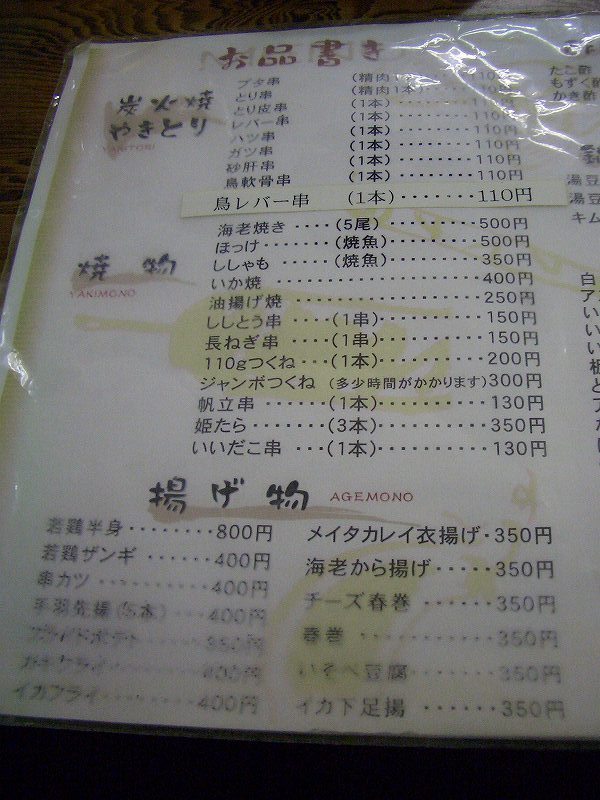 お品書き
炭火焼
やきとり
YAKITORI
ブタ串 (精肉1本) 110円
とり串 (精肉1本) 110円
とり皮串 (1本) 110円
レバー串 (1本) 110円
ハツ串 (1本) 110円
ガツ串 (1本) 110円
砂肝串 (1本) 110円
鳥軟骨串 (1本) 110円
鳥レバー串 (1本) ・・・・・・・・110円
焼物
YAKIMONO
海老焼き ・・・・(5尾)・・・・・・・・・500円
ほっけ・・・・・・・(焼魚)・・・・・・・・・500円
ししゃも・・・・・(焼魚)・・・・・・・・・350円
いか焼・・・・・・・・・・・・・・・・・・400円
油揚げ焼・・・・・・・・・・・・・・・・250円
ししとう串・・・・(1串)・・・・・・・・150円
長ねぎ串・・・・・(1串)・・・・・・・・150円
110gつくね・・・(1本)・・・・・・・・200円
ジャンボつくね (多少時間がかかります)300円
帆立串・・・・・・(1本)・・・・・・・・・130円
姫たら・・・・・・(3本)・・・・・・・・・350円
いいだこ串 ・・・(1本)・・・・・・・・・130円
揚げ物 AGEMONO
若鶏半身・・・・・・・・800円
若鶏ザンギ・・・・・・400円
串カツ・・・・・・・・・400円
手羽先揚(5本)・・・400円
フライドポテト・・・・350円
カキフライ・・・・・・400円
イカフライ・・・・・・400円
メイタカレイ衣揚げ・350円
海老から揚げ・・・・・350円
チーズ春巻・・・・・・350円
春巻・・・・・・・・・・・350円
いそべ豆腐・・・・・・350円
イカ下足揚・・・・・・350円
たこ酢
もずく酢
かき酢
湯豆
湯豆
キム